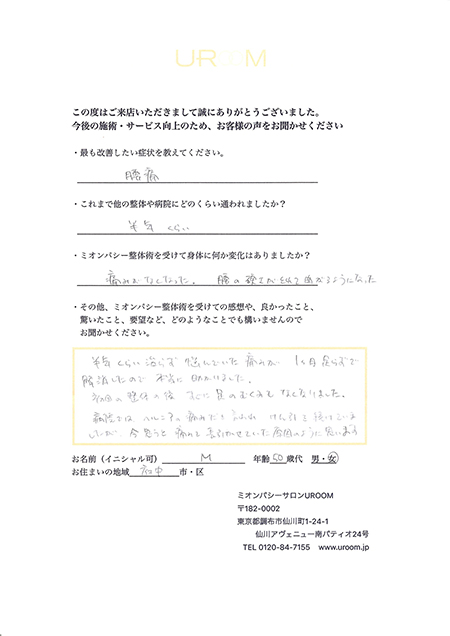 UROOM
この度はご来店いただきまして誠にありがとうございました。
今後の施術・サービス向上のため、お客様の声をお聞かせください
・最も改善したい症状を教えてください。
腰痛
・これまで他の整体や病院にどのくらい通われましたか？
半年くらい
・ミオンパシー整体術を受けて身体に何か変化はありましたか？
痛みがなくなった。 腰の硬さがとれて曲がるようになった
・その他、ミオンパシー整体術を受けての感想や、良かったこと、
驚いたこと、要望など、どのようなことでも構いませんので
お聞かせください。
半年くらい治らず悩んでいた痛みが 1ヶ月足らずで
解消したので 本当に助かりました。
初回の整体の後、すぐに足のむくみもなくなりました。
病院では ヘルニアの痛みだと言われ けん引を続けていま
したが、今思うと痛みを長引かせていた原因のように思います
お名前（イニシャル可） M 年齢 50 歳代 男・女
お住まいの地域 府中 市・区
ミオンパシーサロンUROOM
〒182-0002
東京都調布市仙川町1-24-1
仙川アヴェニュー南パティオ24号
TEL 0120-84-7155 www.uroom.jp